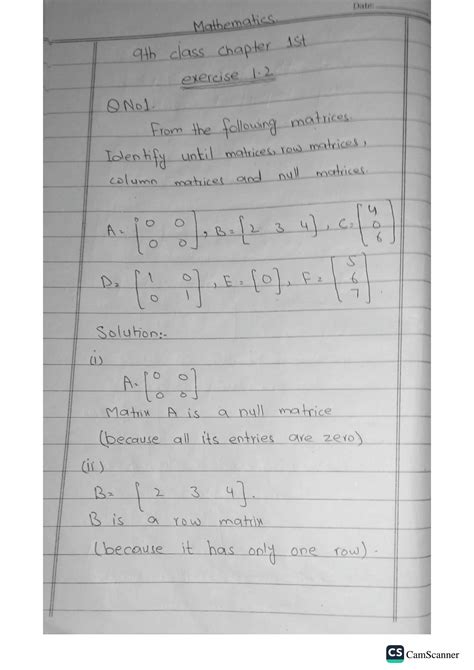 Date:
Mathematics.
9th class chapter 1st
exercise 1.2
Q No1.
From the following matrices.
Identify until matrices, row matrices,
column matrices and null matrices.
A = [0 0; 0 0], B = [2 3 4], C = [4; 0; 6]
D = [1 0; 0 1], E = [0], F = [5; 6; 7].
Solution:-
(i)
A = [0 0; 0 0]
Matrix A is a null matrice
(because all its entries are zero)
(ii)
B = [2 3 4].
B is a row matrix
(because it has only one row).
CS CamScanner